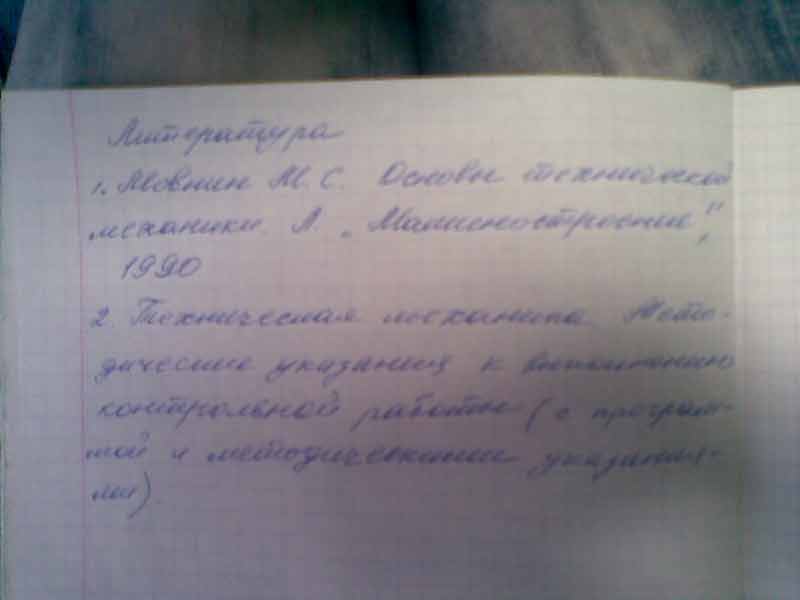 Литература
1. Мовнин М. С. Основы технической
механики. Л. „Машиностроение",
1990
2. Техническая механика. Мето-
дические указания к выполнению
контрольной работы (с програм-
мой и методическими указания-
ми).